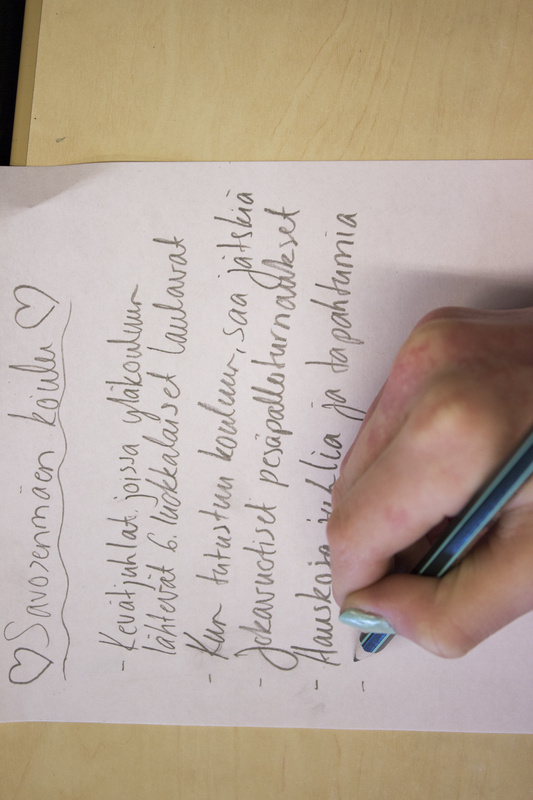 ♡ Savosenmäen koulu ♡
- Kevätjuhlat, joissa yläkouluun
lähtevät 6. luokkalaiset laulavat
- Kun tutustuu kouluun, saa jätskiä
- Jokavuotiset pesäpalloturnaukset
- Hauskoja juhlia ja tapahtumia
-